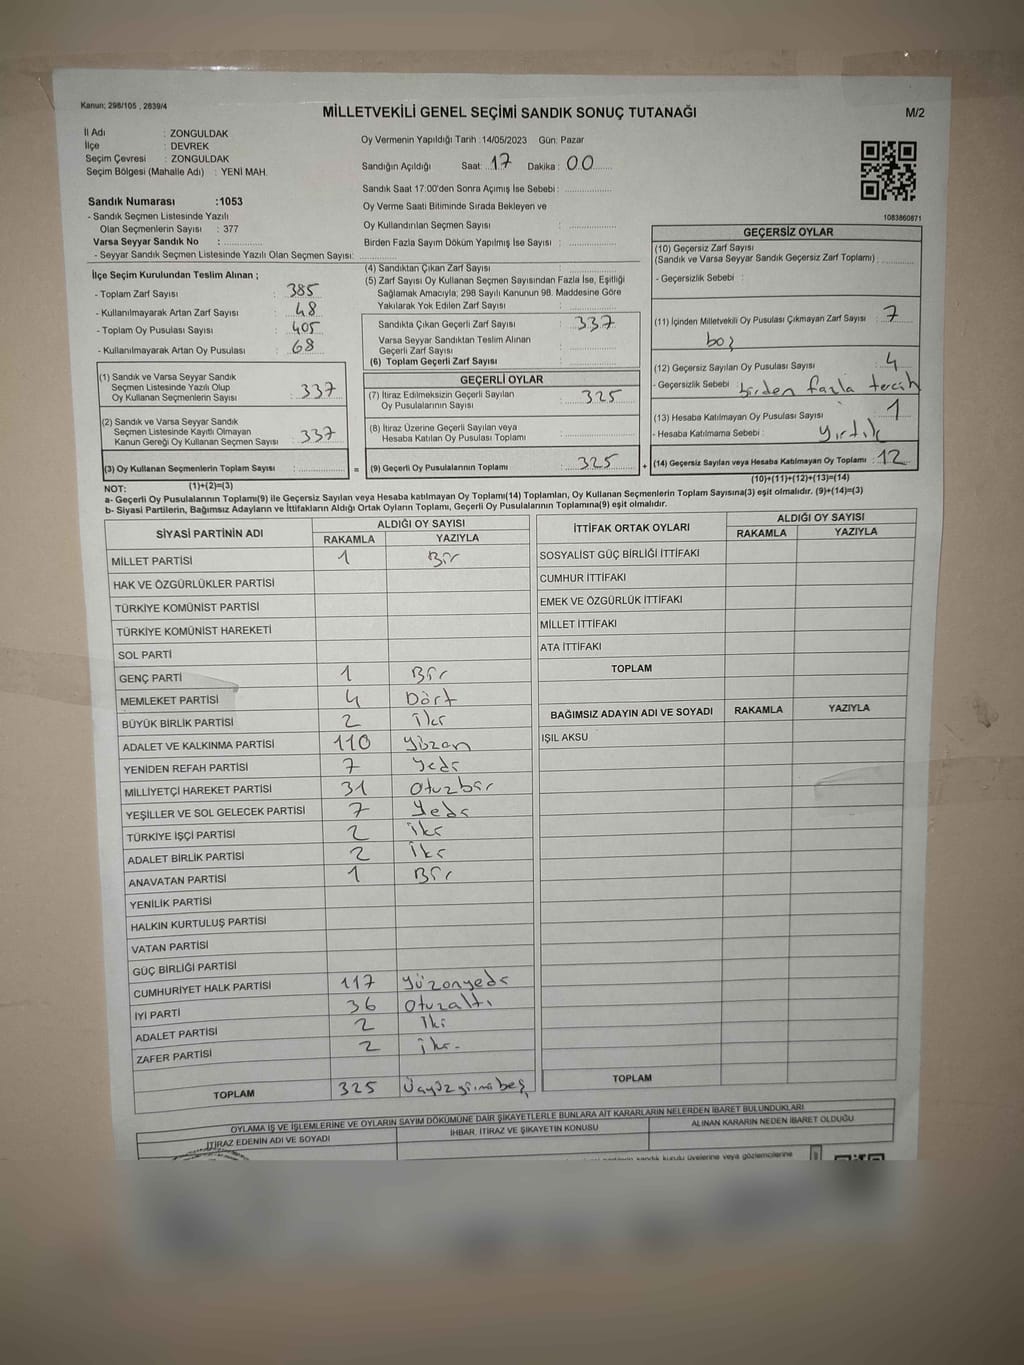 Kanun; 298/105 , 2839/4
MİLLETVEKİLİ GENEL SEÇİMİ SANDIK SONUÇ TUTANAĞI
M/2
İl Adı : ZONGULDAK
İlçe : DEVREK
Seçim Çevresi : ZONGULDAK
Seçim Bölgesi (Mahalle Adı) : YENİ MAH.
Oy Vermenin Yapıldığı Tarih :14/05/2023 Gün: Pazar
Sandığın Açıldığı Saat: 17 Dakika : 00
Sandık Saat 17:00'den Sonra Açımış İse Sebebi :
Oy Verme Saati Bitiminde Sırada Bekleyen ve
Oy Kullandırılan Seçmen Sayısı :
Birden Fazla Sayım Döküm Yapılmış İse Sayısı :
1083860871
Sandık Numarası :1053
- Sandık Seçmen Listesinde Yazılı
Olan Seçmenlerin Sayısı : 377
Varsa Seyyar Sandık No :
- Seyyar Sandık Seçmen Listesinde Yazılı Olan Seçmen Sayısı:
İlçe Seçim Kurulundan Teslim Alınan ;
- Toplam Zarf Sayısı : 385
- Kullanılmayarak Artan Zarf Sayısı : 48
- Toplam Oy Pusulası Sayısı : 405
- Kullanılmayarak Artan Oy Pusulası : 68
(1) Sandık ve Varsa Seyyar Sandık
Seçmen Listesinde Yazılı Olup
Oy Kullanan Seçmenlerin Sayısı : 337
(2) Sandık ve Varsa Seyyar Sandık
Seçmen Listesinde Kayıtlı Olmayan
Kanun Gereği Oy Kullanan Seçmen Sayısı : 337
(3) Oy Kullanan Seçmenlerin Toplam Sayısı :
(1)+(2)=(3)
(4) Sandıktan Çıkan Zarf Sayısı :
(5) Zarf Sayısı Oy Kullanan Seçmen Sayısından Fazla İse, Eşitliği
Sağlamak Amacıyla; 298 Sayılı Kanunun 98. Maddesine Göre
Yakılarak Yok Edilen Zarf Sayısı :
Sandıkta Çıkan Geçerli Zarf Sayısı : 337
Varsa Seyyar Sandıktan Teslim Alınan
Geçerli Zarf Sayısı :
(6) Toplam Geçerli Zarf Sayısı :
GEÇERLİ OYLAR
(7) İtiraz Edilmeksizin Geçerli Sayılan
Oy Pusulalarının Sayısı : 325
(8) İtiraz Üzerine Geçerli Sayılan veya
Hesaba Katılan Oy Pusulaları Toplamı :
= (9) Geçerli Oy Pusulalarının Toplamı : 325 +
GEÇERSİZ OYLAR
(10) Geçersiz Zarf Sayısı
(Sandık ve Varsa Seyyar Sandık Geçersiz Zarf Toplamı) :
- Geçersizlik Sebebi :
(11) İçinden Milletvekili Oy Pusulası Çıkmayan Zarf Sayısı : 7
boş
(12) Geçersiz Sayılan Oy Pusulası Sayısı : 4
- Geçersizlik Sebebi : birden fazla tercih
(13) Hesaba Katılmayan Oy Pusulası Sayısı : 1
- Hesaba Katılmama Sebebi : yırtık
(14) Geçersiz Sayılan veya Hesaba Katılmayan Oy Toplamı : 12
(10)+(11)+(12)+(13)=(14)
NOT:
a- Geçerli Oy Pusulalarının Toplamı(9) ile Geçersiz Sayılan veya Hesaba katılmayan Oy Toplamı(14) Toplamları, Oy Kullanan Seçmenlerin Toplam Sayısına(3) eşit olmalıdır. (9)+(14)=(3)
b- Siyasi Partilerin, Bağımsız Adayların ve İttifakların Aldığı Ortak Oyların Toplamı, Geçerli Oy Pusulalarının Toplamına(9) eşit olmalıdır.
SİYASİ PARTİNİN ADI ALDIĞI OY SAYISI
RAKAMLA YAZIYLA
MİLLET PARTİSİ 1 Bir
HAK VE ÖZGÜRLÜKLER PARTİSİ
TÜRKİYE KOMÜNİST PARTİSİ
TÜRKİYE KOMÜNİST HAREKETİ
SOL PARTİ
GENÇ PARTİ 1 Bir
MEMLEKET PARTİSİ 4 Dört
BÜYÜK BİRLİK PARTİSİ 2 iki
ADALET VE KALKINMA PARTİSİ 110 yüzon
YENİDEN REFAH PARTİSİ 7 yedi
MİLLİYETÇİ HAREKET PARTİSİ 31 otuzbir
YEŞİLLER VE SOL GELECEK PARTİSİ 7 yedi
TÜRKİYE İŞÇİ PARTİSİ 2 iki
ADALET BİRLİK PARTİSİ 2 iki
ANAVATAN PARTİSİ 1 Bir
YENİLİK PARTİSİ
HALKIN KURTULUŞ PARTİSİ
VATAN PARTİSİ
GÜÇ BİRLİĞİ PARTİSİ
CUMHURİYET HALK PARTİSİ 117 yüzonyedi
İYİ PARTİ 36 otuzaltı
ADALET PARTİSİ 2 iki
ZAFER PARTİSİ 2 iki
TOPLAM 325 Üçyüzyirmibeş
İTTİFAK ORTAK OYLARI ALDIĞI OY SAYISI
RAKAMLA YAZIYLA
SOSYALİST GÜÇ BİRLİĞİ İTTİFAKI
CUMHUR İTTİFAKI
EMEK VE ÖZGÜRLÜK İTTİFAKI
MİLLET İTTİFAKI
ATA İTTİFAKI
TOPLAM
BAĞIMSIZ ADAYIN ADI VE SOYADI RAKAMLA YAZIYLA
IŞIL AKSU
TOPLAM
OYLAMA İŞ VE İŞLEMLERİNE VE OYLARIN SAYIM DÖKÜMÜNE DAİR ŞİKAYETLERLE BUNLARA AİT KARARLARIN NELERDEN İBARET BULUNDUKLARI
İTİRAZ EDENİN ADI VE SOYADI
İHBAR, İTİRAZ VE ŞİKAYETİN KONUSU
ALINAN KARARIN NEDEN İBARET OLDUĞU
sandık kurulu üyelerine veya gözlemcilerine